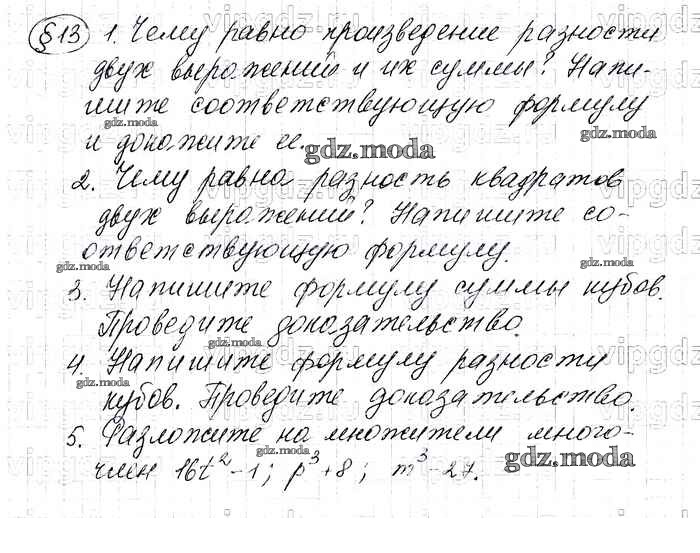 §13 1. Чему равно произведение разности
двух выражений и их суммы? Напи-
шите соответствующую формулу
и докажите ее.
2. Чему равна разность квадратов
двух выражений? Напишите со-
ответствующую формулу.
3. Напишите формулу суммы кубов.
Проведите доказательство.
4. Напишите формулу разности
кубов. Проведите доказательство.
5. Разложите на множители много-
член 16t²-1; p³+8; m³-27.
gdz.moda
gdz.moda
gdz.moda
gdz.moda
gdz.moda
gdz.moda
gdz.moda
gdz.moda